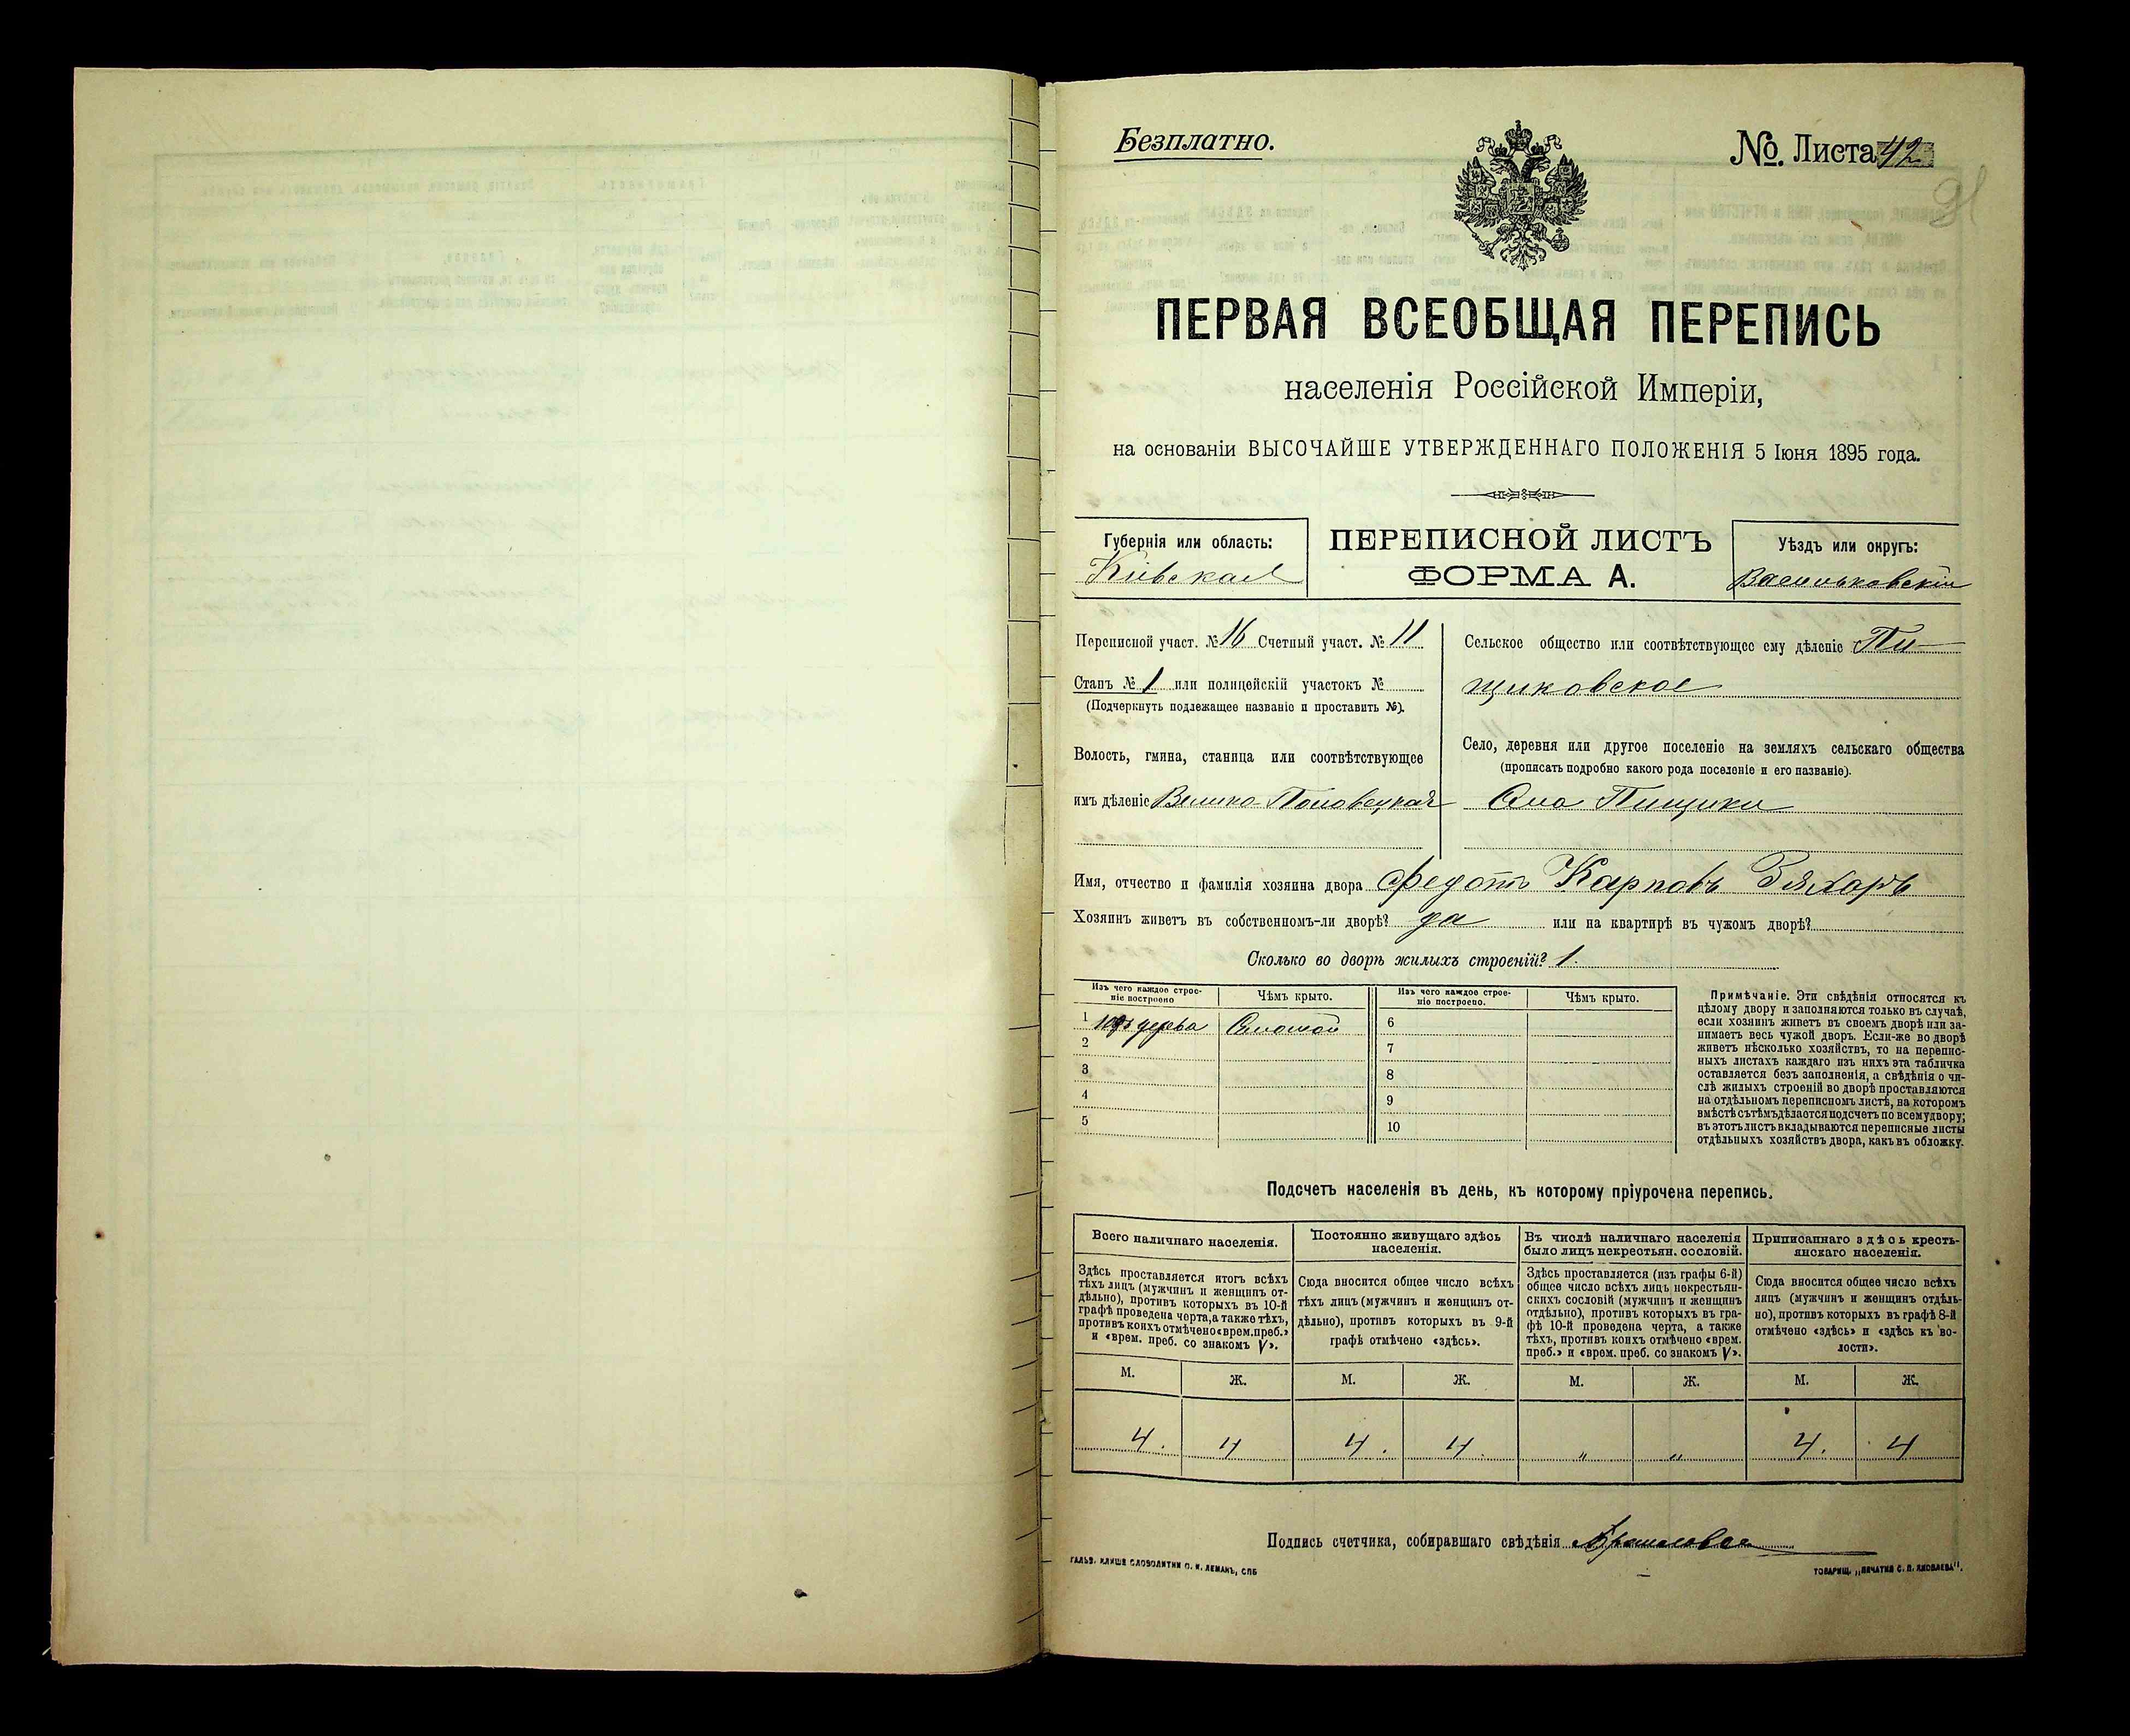 Безплатно.
№. Листа 42
ПЕРВАЯ ВСЕОБЩАЯ ПЕРЕПИСЬ
населенія Россійской Имперіи,
на основаніи ВЫСОЧАЙШЕ УТВЕРЖДЕННАГО ПОЛОЖЕНІЯ 5 Іюня 1895 года.
Губернія или область:
Кіевская
ПЕРЕПИСНОЙ ЛИСТЪ
ФОРМА А.
Уѣздъ или округъ:
Васильковскій
Переписной участ. № 16 Счетный участ. № 11
Станъ № 1 или полицейскій участокъ №
(Подчеркнуть подлежащее названіе и проставить №).
Волость, гмина, станица или соотвѣтствующее
имъ дѣленіе Велико-Половецкая
Сельское общество или соотвѣтствующее ему дѣленіе Пи-
щиковское
Село, деревня или другое поселеніе на земляхъ сельскаго общества
(прописать подробно какого рода поселеніе и его названіе).
Село Пищики
Имя, отчество и фамилія хозяина двора Федотъ Карповъ
Хозяинъ живетъ въ собственномъ-ли дворѣ? да или на квартирѣ въ чужомъ дворѣ?
Сколько во дворѣ жилыхъ строеній? 1.
Изъ чего каждое строе-
ніе построено
Чѣмъ крыто.
Изъ чего каждое строе-
ніе построено.
Чѣмъ крыто.
1 изъ дерева Соломой
2
3
4
5
6
7
8
9
10
Примѣчаніе. Эти свѣдѣнія относятся къ
цѣлому двору и заполняются только въ случаѣ,
если хозяинъ живетъ въ своемъ дворѣ или за-
нимаетъ весь чужой дворъ. Если-же во дворѣ
живетъ нѣсколько хозяйствъ, то на перепис-
ныхъ листахъ каждаго изъ нихъ эта табличка
оставляется безъ заполненія, а свѣдѣнія о чи-
слѣ жилыхъ строеній во дворѣ проставляются
на отдѣльномъ переписномъ листѣ, на которомъ
вмѣстѣ съ тѣмъ дѣлается подсчетъ по всему двору;
въ этотъ листъ вкладываются переписные листы
отдѣльныхъ хозяйствъ двора, какъ въ обложку.
Подсчетъ населенія въ день, къ которому пріурочена перепись.
Всего наличнаго населенія.
Здѣсь проставляется итогъ всѣхъ
тѣхъ лицъ (мужчинъ и женщинъ от-
дѣльно), противъ которыхъ въ 10-й
графѣ проведена черта, а также тѣхъ,
противъ коихъ отмѣчено «врем. преб.»
и «врем. преб. со знакомъ V».
Постоянно живущаго здѣсь
населенія.
Сюда вносится общее число всѣхъ
тѣхъ лицъ (мужчинъ и женщинъ от-
дѣльно), противъ которыхъ въ 9-й
графѣ отмѣчено «здѣсь».
Въ числѣ наличнаго населенія
было лицъ некрестьян. сословій.
Здѣсь проставляется (изъ графы 6-й)
общее число всѣхъ лицъ некрестьян-
скихъ сословій (мужчинъ и женщинъ
отдѣльно), противъ которыхъ въ гра-
фѣ 10-й проведена черта, а также
тѣхъ, противъ коихъ отмѣчено «врем.
преб.» и «врем. преб. со знакомъ V».
Приписаннаго здѣсь кресть-
янскаго населенія.
Сюда вносится общее число всѣхъ
лицъ (мужчинъ и женщинъ отдѣль-
но), противъ которыхъ въ графѣ 8-й
отмѣчено «здѣсь» и «здѣсь къ во-
лости».
М. Ж. М. Ж. М. Ж. М. Ж.
4. 4 4. 4. „ „ 4. 4
Подпись счетчика, собиравшаго свѣдѣнія
ГАЛЬВ. КЛИШЕ СЛОВОЛИТНИ О. И. ЛЕМАНЪ, СПБ
ТОВАРИЩ. „ПЕЧАТНЯ С. П. ЯКОВЛЕВА".